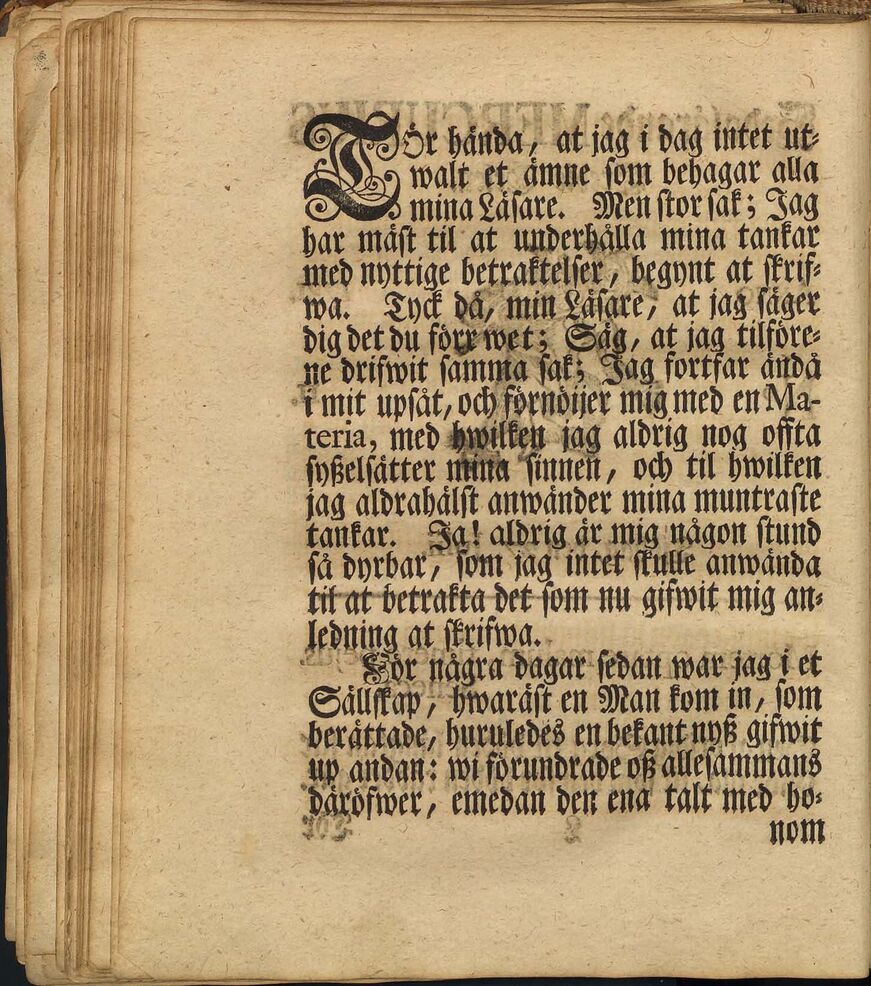 Tör hända, at jag i dag intet ut-
walt et ämne som behagar alla
mina Läsare. Men stor sak; Jag
har mäst til at underhålla mina tankar
med nyttige betraktelser, begynt at skrif-
wa. Tyck då, min Läsare, at jag säger
dig det du förr wet; Säg, at jag tilföre-
ne drifwit samma sak; Jag fortfar ändå
i mit upsåt, och förnöijer mig med en Ma-
teria, med hwilken jag aldrig nog offta
syßelsätter mina sinnen, och til hwilken
jag aldrahälst anwänder mina muntraste
tankar. Ja! aldrig är mig någon stund
så dyrbar, som jag intet skulle anwända
til at betrakta det som nu gifwit mig an-
ledning at skrifwa.
För några dagar sedan war jag i et
Sällskap, hwaräst en Man kom in, som
berättade, huruledes en bekant nyß gifwit
up andan: wi förundrade oß allesammans
däröfwer, emedan den ena talt med ho-
nom